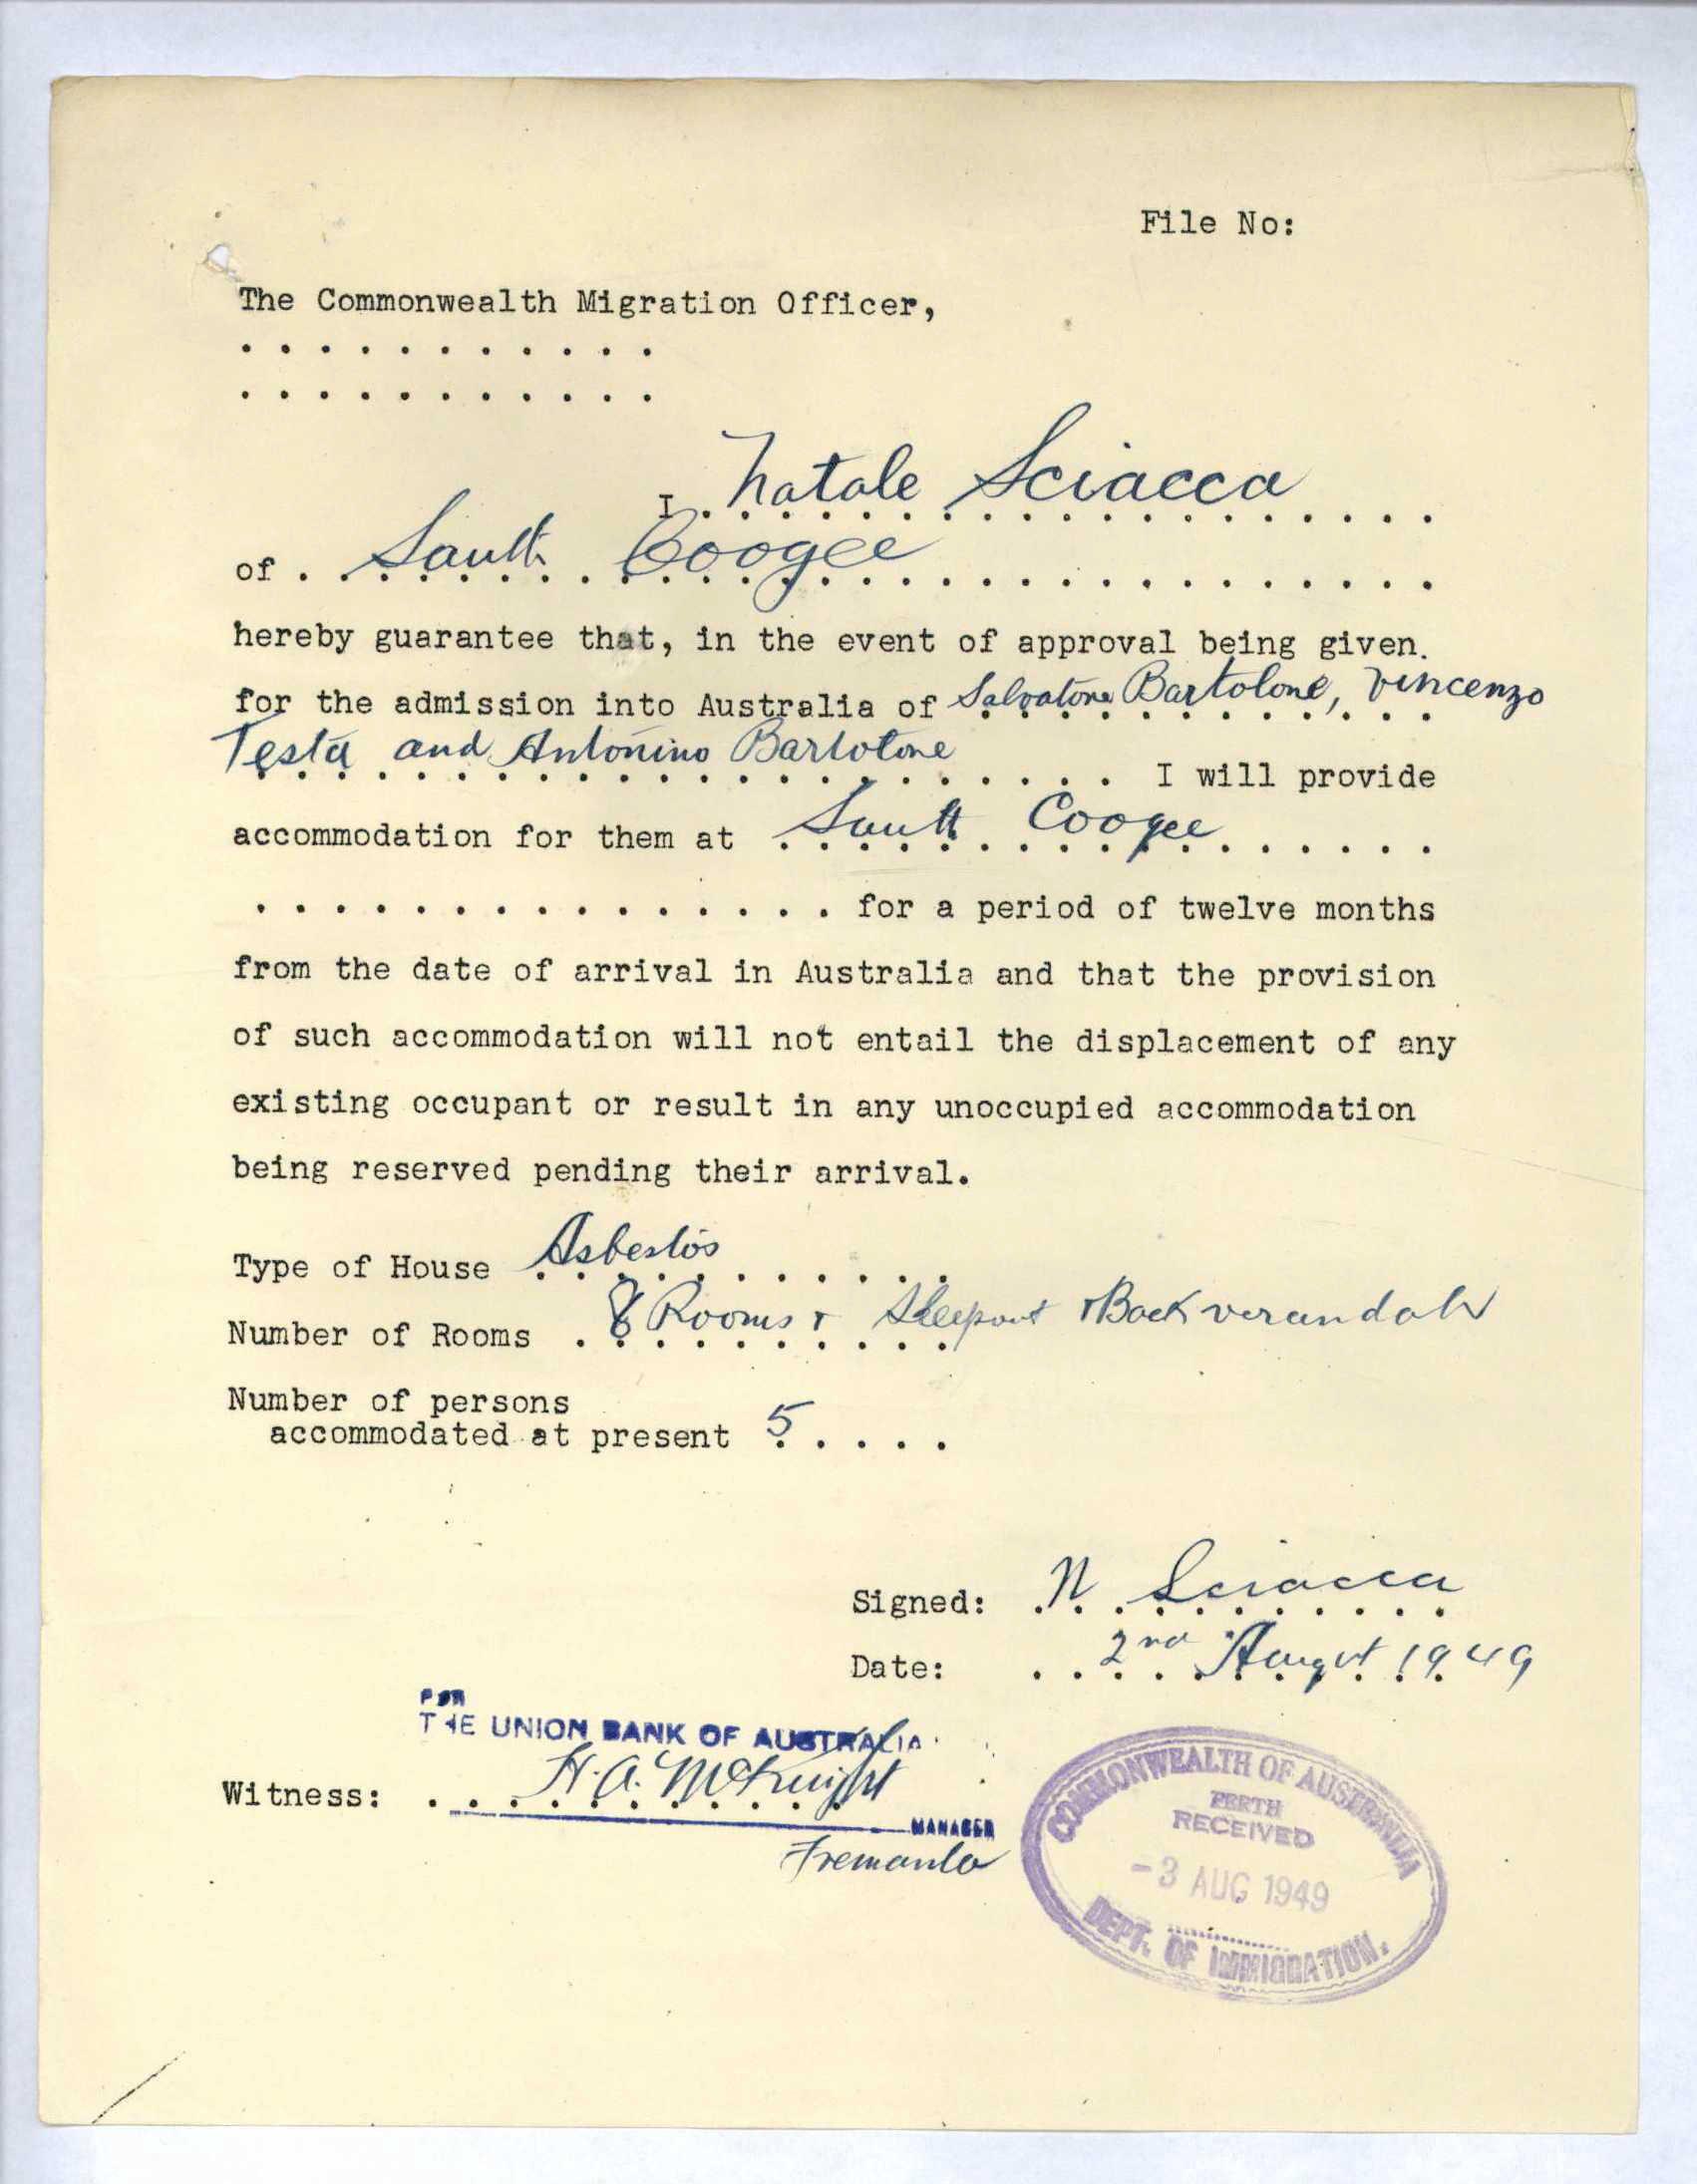 File No:
The Commonwealth Migration Officer,
. . . . . . . . . . .
. . . . . . . . . . .
I Natale Sciacca
of South Coogee
hereby guarantee that, in the event of approval being given.
for the admission into Australia of Salvatore Bartolone, Vincenzo
Testa and Antonino Bartolone I will provide
accommodation for them at South Coogee
. . . . . . . . . . . . . . . for a period of twelve months
from the date of arrival in Australia and that the provision
of such accommodation will not entail the displacement of any
existing occupant or result in any unoccupied accommodation
being reserved pending their arrival.
Type of House Asbestos
Number of Rooms 8 Rooms + Sleepout + Back verandah
Number of persons
accommodated at present 5
Signed: N Sciacca
Date: 2nd August 1949
FOR
THE UNION BANK OF AUSTRALIA
Witness: H. A. McKnight
MANAGER
Fremantle
COMMONWEALTH OF AUSTRALIA
PERTH
RECEIVED
-3 AUG 1949
DEPT. OF IMMIGRATION.